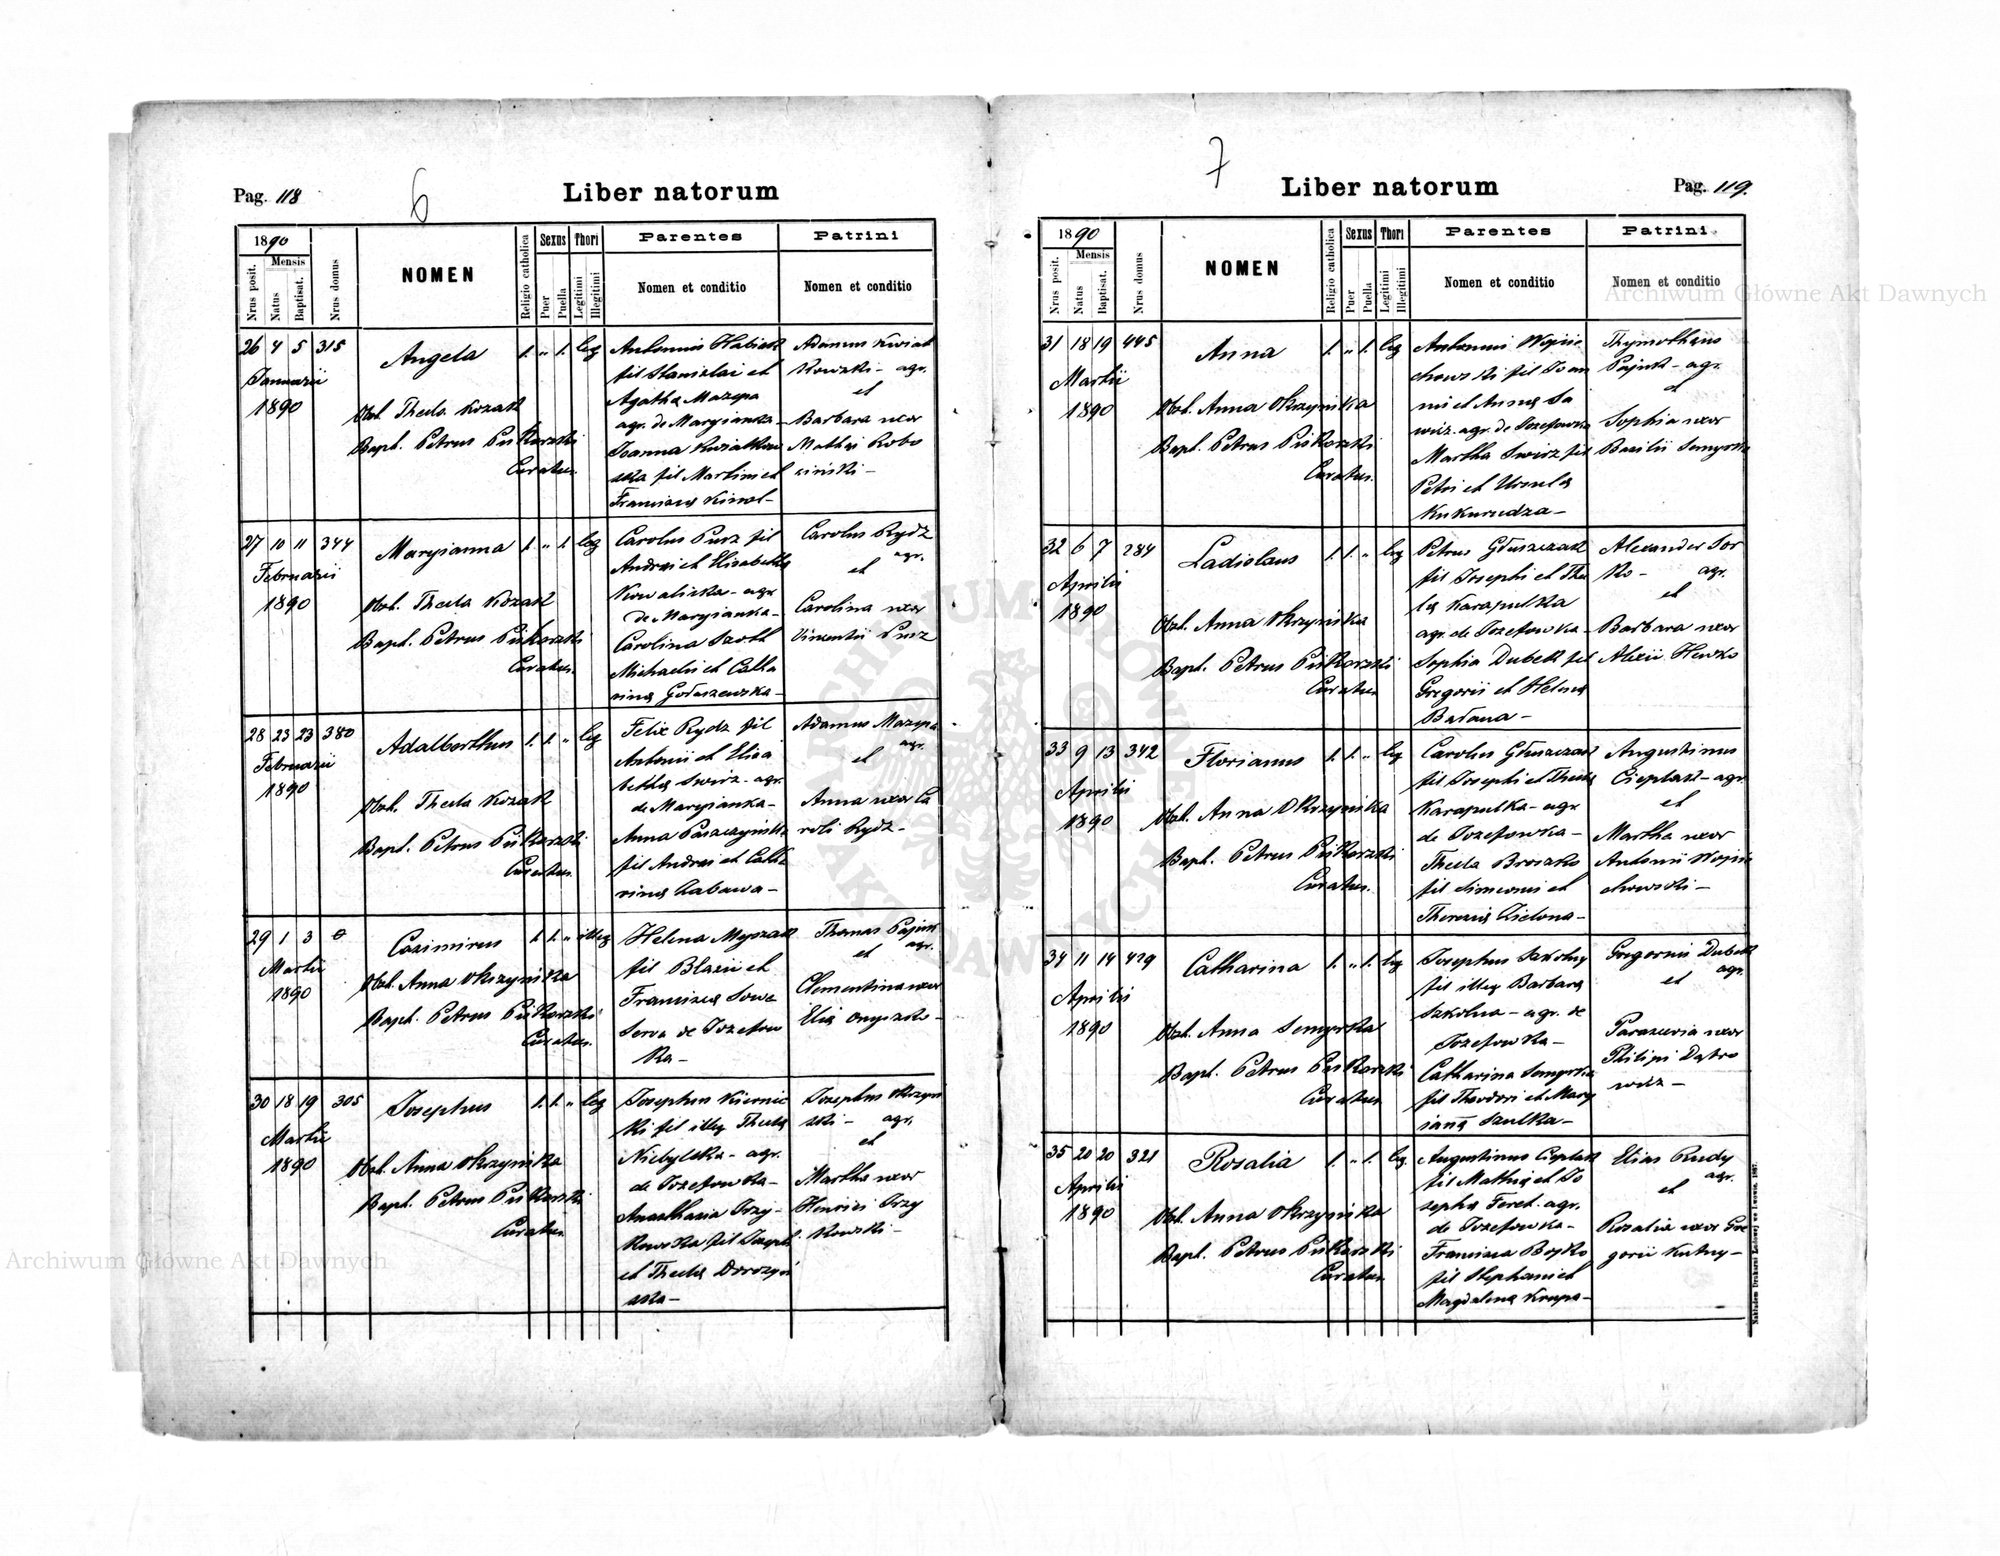 Pag. 118
6
Liber natorum
1890
Mensis
Nrus posit.
Natus
Baptisat.
Nrus domus
NOMEN
Religio catholica
Sexus
Puer
Puella
Thori
Legitimi
Illegitimi
Parentes
Nomen et conditio
Patrini
Nomen et conditio
26 4 5 315
Januarii
1890
Angela
1. " 1. leg
Obst. Thecla Kozak
Bapt. Petrus Piskorzski
Curatus.
Antonius Habiak
fil Stanislai et
Agatha Mazepa
agr. de Maryianka-
Joanna Kwiatkow
ska fil Martini et
Adamus Kwiat
kowski - agr.
et
Barbara uxor
Mathei Robo
27 10 11 344
Februarii
1890
Maryianna
1. " 1. leg
Obst. Thecla Kozak
Bapt. Petrus Piskorzski
Curatus.
Carolus Purz fil
Andrei et Elisabetha
Kowaliska - agr
de Maryianka-
Carolina Szott
Michaelis et Catha
rina Gołaszewska-
Carolus Rydz
agr.
et
Carolina uxor
Vincentii Purz
28 23 23 380
Februarii
1890
Adalberthus
1. 1. " leg
Obst. Thecla Kozak
Bapt. Petrus Piskorzski
Curatus.
Felix Rydz fil
Antonii et Elisa
betha Swirz - agr.
de Maryianka-
Anna Paszczyńska
fil Andrei et Catha
rina Łabawa-
Adamus Mazepa
agr.
et
Anna uxor Ca
roli Rydz-
29 1 3
Martii
1890
Cazimirus
1. 1. " illeg
Obst. Anna Okrzyńska
Bapt. Petrus Piskorzski
Curatus.
Helena Myszak
fil Blasii et
Francisca Sowa
Serva de Jozefow
ka-
Thomas Pajuk
agr.
et
Clementina uxor
Elia Onyszko-
30 18 19 305
Martii
1890
Josephus
1. 1. " leg
Obst. Anna Okrzyńska
Bapt. Petrus Piskorzski
Curatus.
Josephus Kiernic
ki fil illeg Thecla
Niebylska - agr.
de Jozefowka-
Anasthasia Trzy-
kowska fil Joseph.
et Thecla Doroszyń
ska-
Josephus Okrzyń
ski - agr.
et
Martha uxor
Henrici Trzy
kowski-
7
Liber natorum
Pag. 119.
1890
Mensis
Nrus posit.
Natus
Baptisat.
Nrus domus
NOMEN
Religio catholica
Sexus
Puer
Puella
Thori
Legitimi
Illegitimi
Parentes
Nomen et conditio
Patrini
Nomen et conditio
31 18 19 445
Martii
1890
Anna
1. " 1. leg
Obst. Anna Okrzyńska
Bapt. Petrus Piskorzski
Curatus.
Antonius Wojcie
chowski fil Joan
nis et Anna Sa
wicz. agr. de Jozefowka
Martha Swirz fil
Petri et Ursula
Kukurudza-
Thymotheus
Pajuk - agr.
et
Sophia uxor
Basilii Semyrska
32 6 7 284
Aprilis
1890
Ladislaus
1. 1. " leg
Obst. Anna Okrzyńska
Bapt. Petrus Piskorzski
Curatus
Petrus Głuszczak
fil Josephi et Thec
la Karapulka
agr. de Jozefowka-
Sophia Dubek fil
Gregorii et Helena
Bałana-
Alexander Sor
ko- agr.
et
Barbara uxor
Alexii Hewko
33 9 13 342
Aprilis
1890
Florianus
1. 1. " leg
Obst. Anna Okrzyńska
Bapt. Petrus Piskorzski
Curatus.
Carolus Głuszczak
fil Josephi et Thecla
Karapulka - agr
de Jozefowka-
Thecla Broszko
fil Simeonis et
Theresia Zielona-
Augustinus
Cieplak - agr
et
Martha uxor
Antonii Wojcie
chowski-
34 11 14 429
Aprilis
1890
Catharina
1. " 1. leg
Obst. Anna Semyrska
Bapt. Petrus Piskorzski
Curatus
Josephus Szkolny
fil illeg Barbara
Szkolna - agr. de
Jozefowka-
Catharina Semyrska
fil Theodori et Mary
ianna Szulka-
Gregorius Dubek
agr.
et
Parascevia uxor
Philipi Dąbro
wicz-
35 20 20 321
Aprilis
1890
Rosalia
1. " 1. leg.
Obst. Anna Okrzyńska
Bapt. Petrus Piskorzski
Curatus
Augustinus Cieplak
fil Mathia et Jo
sepha Feret. agr.
de Jozefowka-
Francisca Bojko
fil Stephani et
Magdalena Krupa-
Elias Rudy
agr.
et
Rozalia uxor Gre
gorii Kutny-
Nakładem Drukarni Ludowej we Lwowie. 1887.
Archiwum Główne Akt Dawnych
Archiwum Główne Akt Dawnych
ARCHIWUM GŁÓWNE AKT DAWNYCH